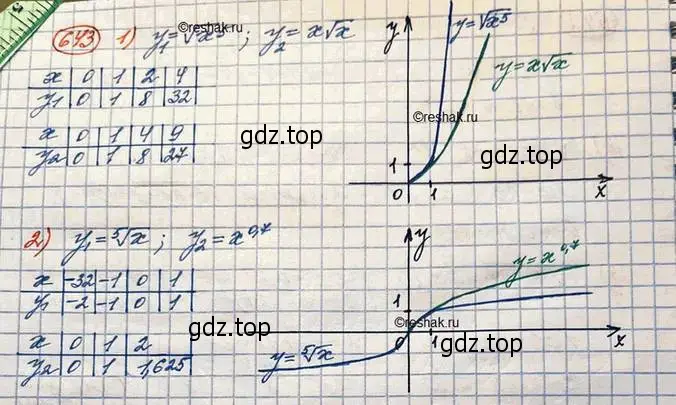 643 1) y₁ = √x⁵ ; y₂ = x√x
x | 0 | 1 | 2 | 4
y₁ | 0 | 1 | 8 | 32
x | 0 | 1 | 4 | 9
y₂ | 0 | 1 | 8 | 27
y
y = √x⁵
y = x√x
1
0 1 x
2) y₁ = ⁵√x ; y₂ = x^0,7
x | -32 | -1 | 0 | 1
y₁ | -2 | -1 | 0 | 1
x | 0 | 1 | 2
y₂ | 0 | 1 | 1,625
y
y = x^0,7
1
0 1 x
y = ⁵√x
©reshak.ru
©reshak.ru
©reshak.ru
gdz.top
gdz.top
gdz.top
gdz.top